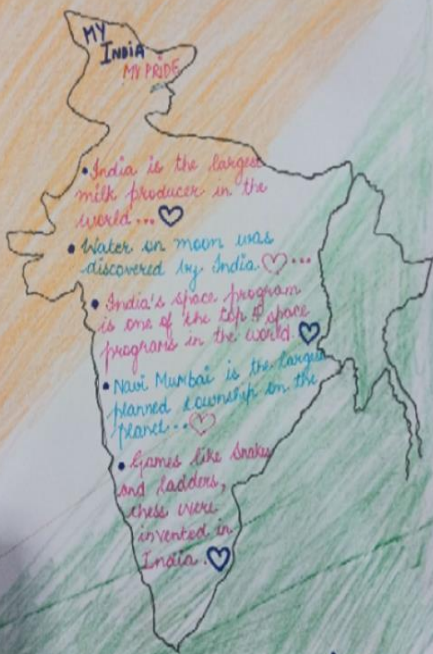 MY
INDIA
MY PRIDE
• India is the largest
milk producer in the
world...
• Water on moon was
discovered by India ...
• India's space program
is one of the top 5 space
programs in the world.
• Navi Mumbai is the largest
planned township on the
planet...
• Games like Snakes
and ladders,
chess were
invented in
India.